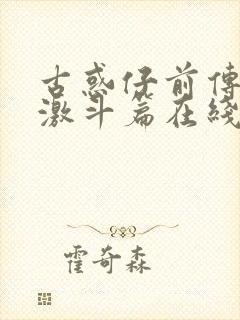 古惑仔前傳
激斗篇在綫
霍奇森